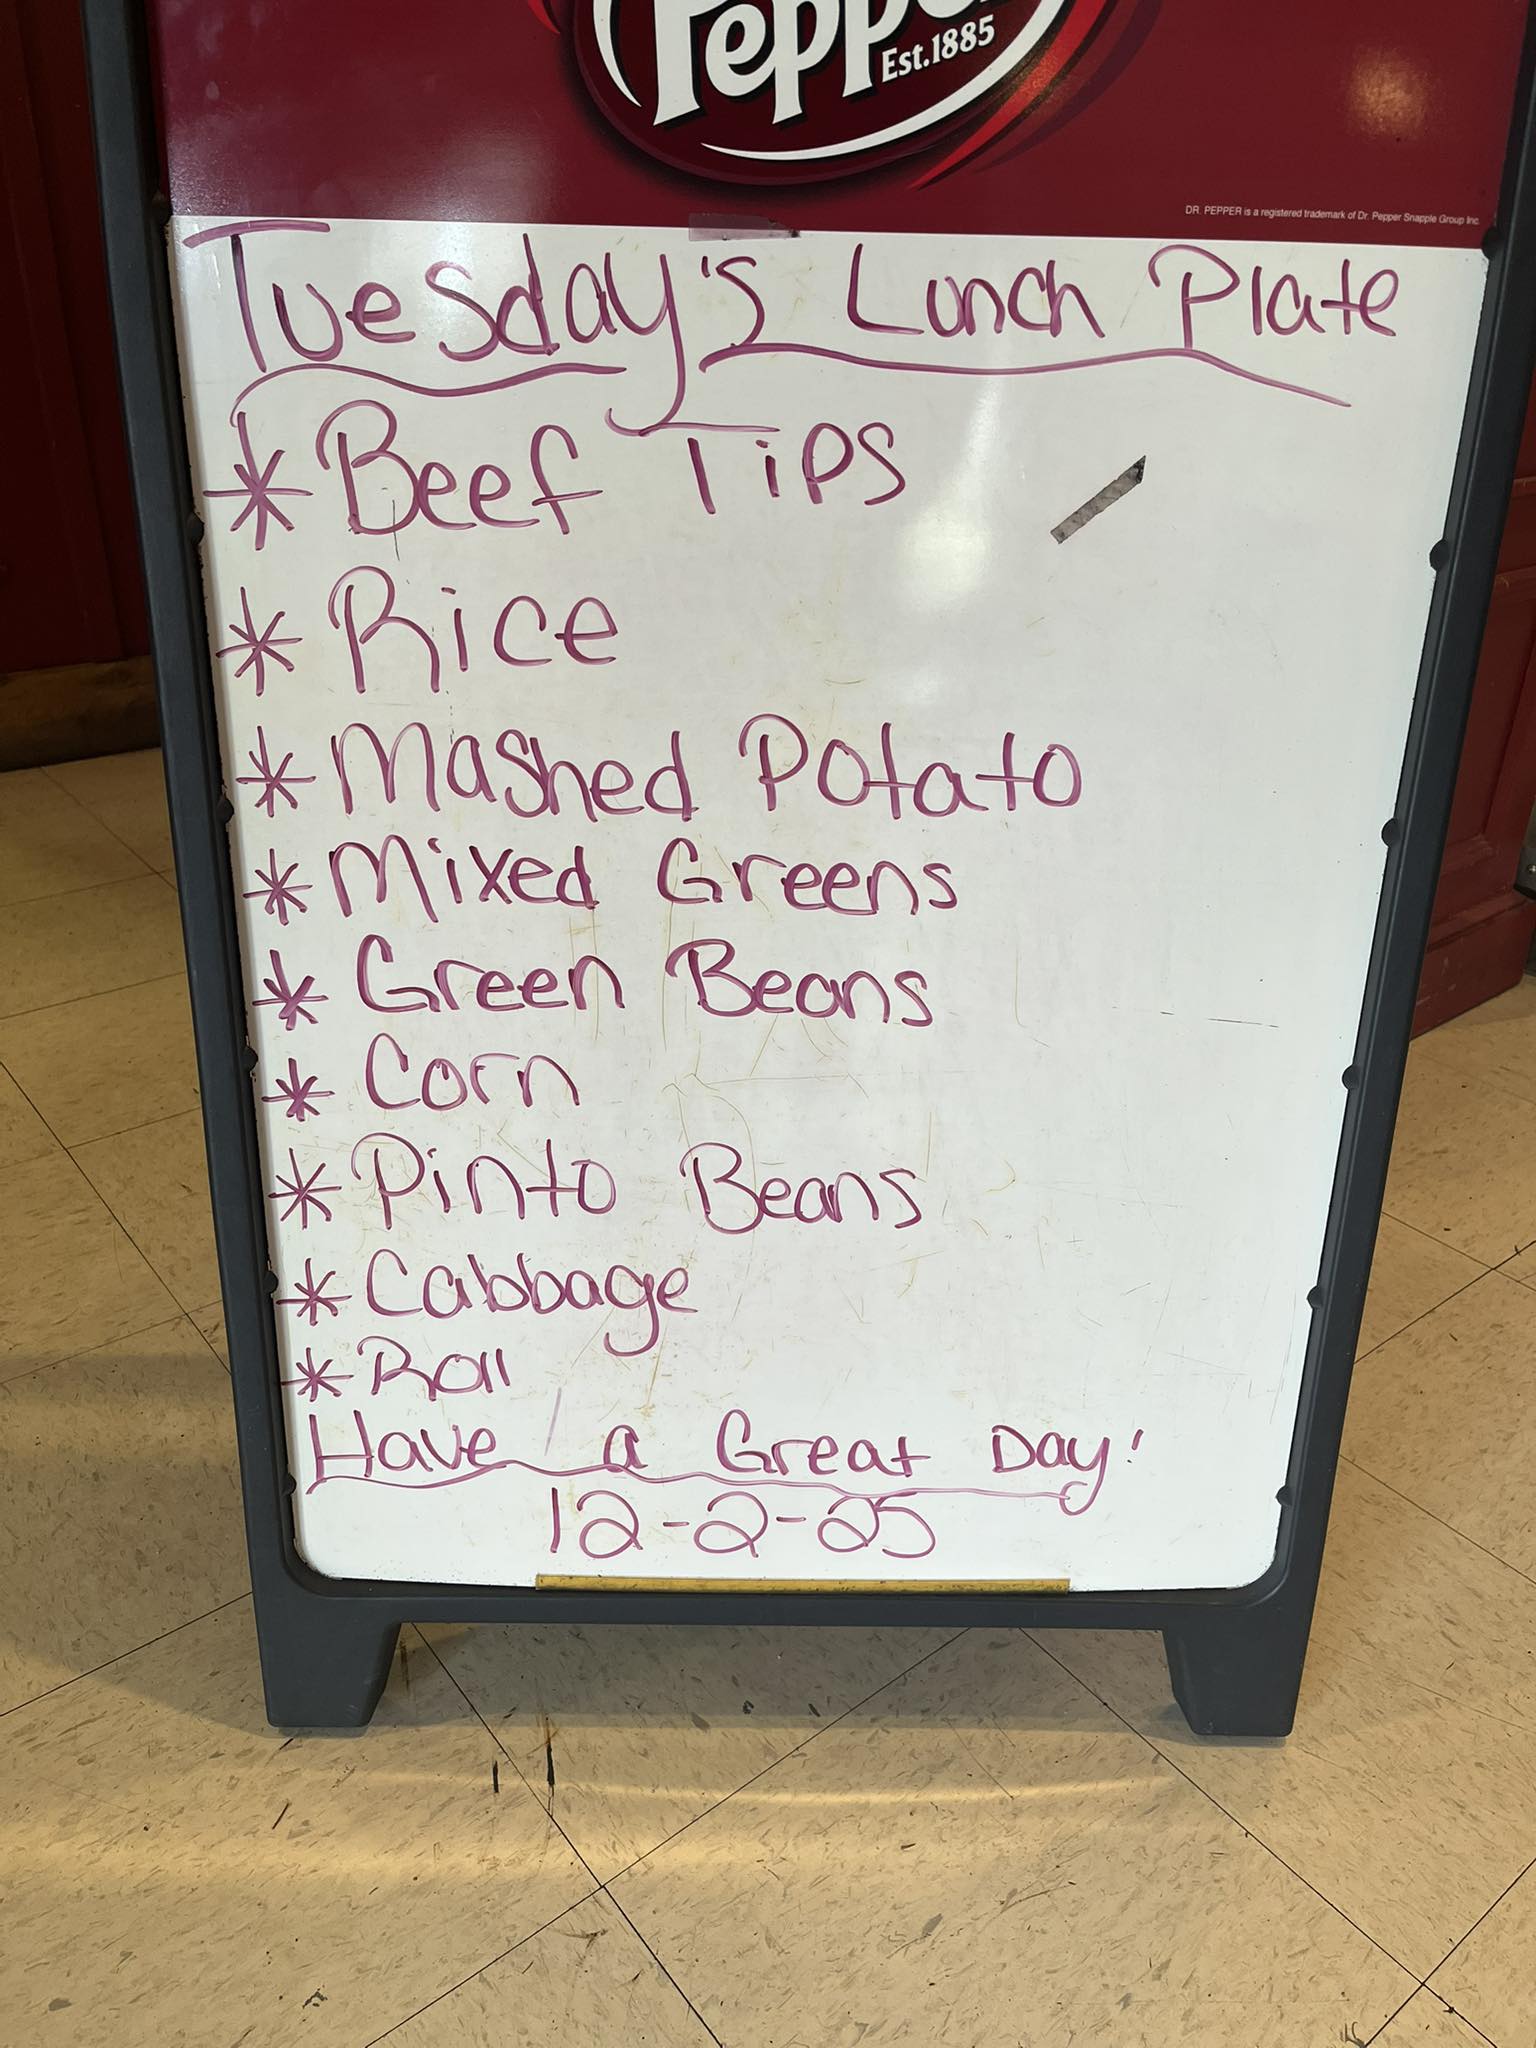 Pepper
Est.1885
DR. PEPPER is a registered trademark of Dr. Pepper Snapple Group Inc.
Tuesday's Lunch Plate
* Beef Tips
* Rice
* Mashed Potato
* Mixed Greens
* Green Beans
* Corn
* Pinto Beans
* Cabbage
* Roll
Have a Great Day!
12-2-25